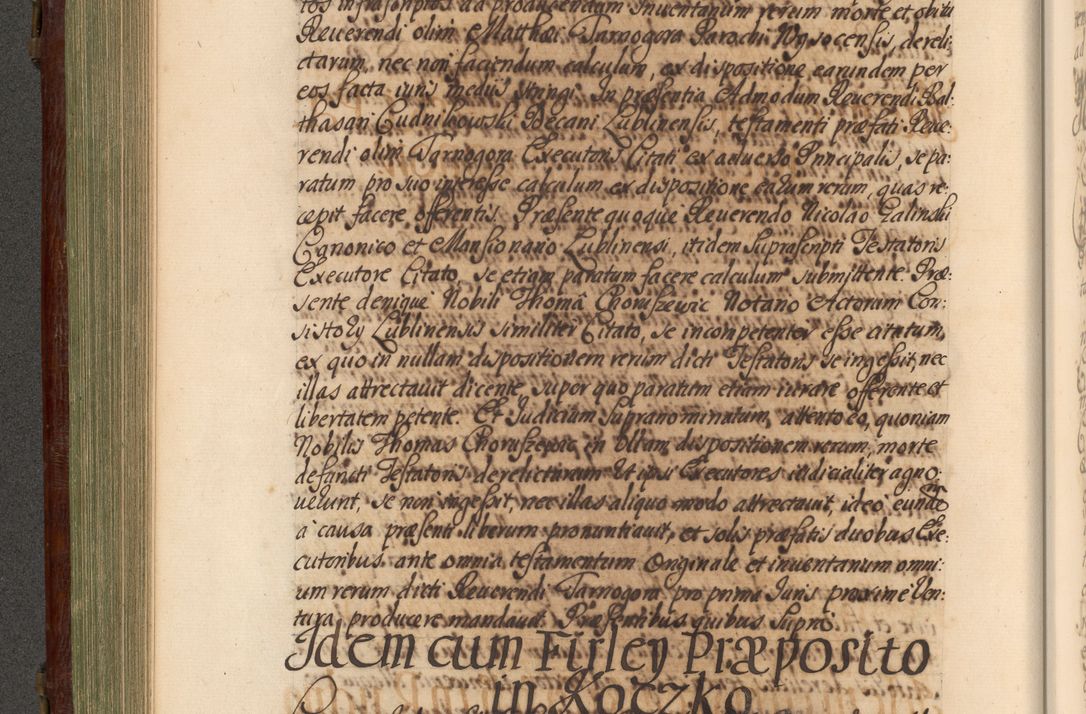 tos infrascriptos ad producendum Inventarium rerum morte et obitu
Reuerendi olim Matthæi Tarnogora Parochi Wysocensis, dereli:
ctarum, nec non faciendum calculum, ex dispositione earundem per
eos facta iuris medijs stringi. In præsentia Admodum Reuerendi Bal:
thasari Cudnikowski Decani Lublinensis, testamenti præfati Reue:
rendi olim Tarnogora Executoris Citati ex aduerso Principalis, se pa:
ratum pro suo interesse calculum ex dispositione earum rerum, quas re:
cæpit facere offerentis. Præsente quoque Reuerendo Nicolao Galinski
Canonico et Mansionario Lublinensi, itidem suprascripti Testatoris
Executore Citato, se etiam paratum facere calculum submittente. Præ:
sente denique Nobili Thoma Choruszewic Notario Actorum Con:
sistorij Lublinensis similiter Citato, se incompetenter esse citatum,
ex quo in nullam dispositionem rerum dicti Testatoris se ingessit, nec
illas attrectauit dicente, super quo paratum etiam iurare offerente et
libertatem petente. Et Judicium supranominatum, attento eo, quoniam
Nobilis Thomas Choruszewic, in ullam dispositionem rerum, morte
defuncti Testatoris derelictarum ut ipsi Executores iudicialiter agno:
uerunt, se non ingessit, nec illas aliquo modo attrectauit, ideo eundem
a causa præsenti liberum pronuntiauit, et solis præfatis duobus Exe:
cutoribus ante omnia testamentum Originale et inuentarium omni:
um rerum dicti Reuerendi Tarnogora pro primo Juris proxime Ven:
turo producere mandauit. Præsentibus quibus supra.
Idem cum Firley Præposito
in Koczko